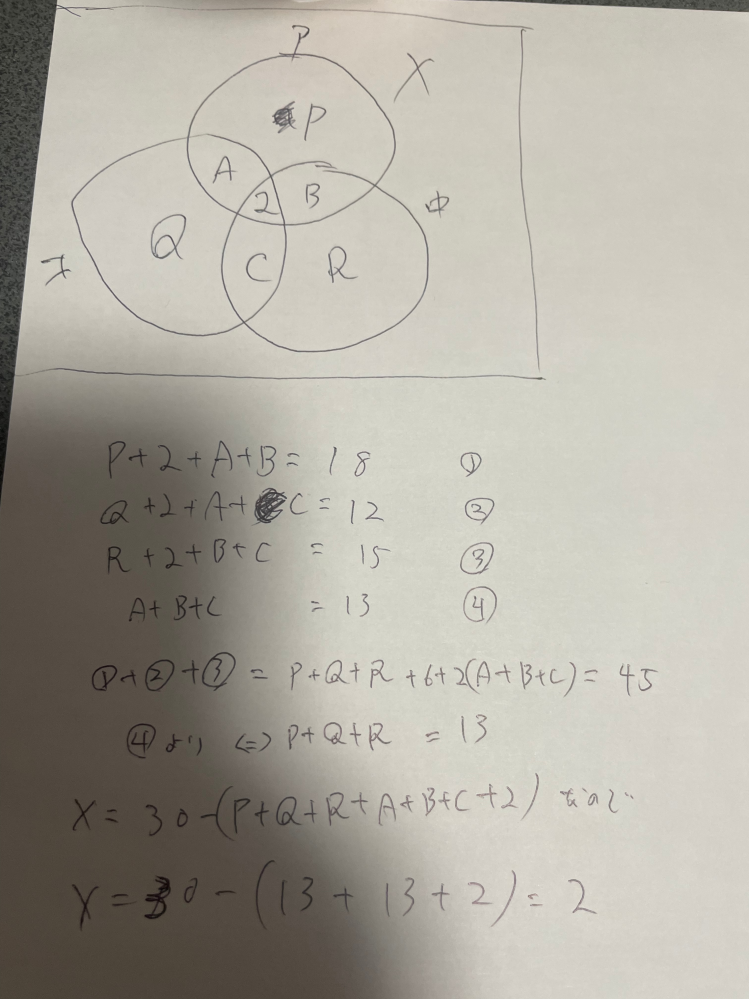 P
X
P
A
2
B
Q
C
R
P+2+A+B= 18 ①
Q+2+A+C=12 ②
R+2+B+C = 15 ③
A+B+C =13 ④
①+②+③ = P+Q+R+6+2(A+B+C)= 45
④より ⇔ P+Q+R = 13
X= 30-(P+Q+R+A+B+C+2) なので
X=30-(13+13+2)=2